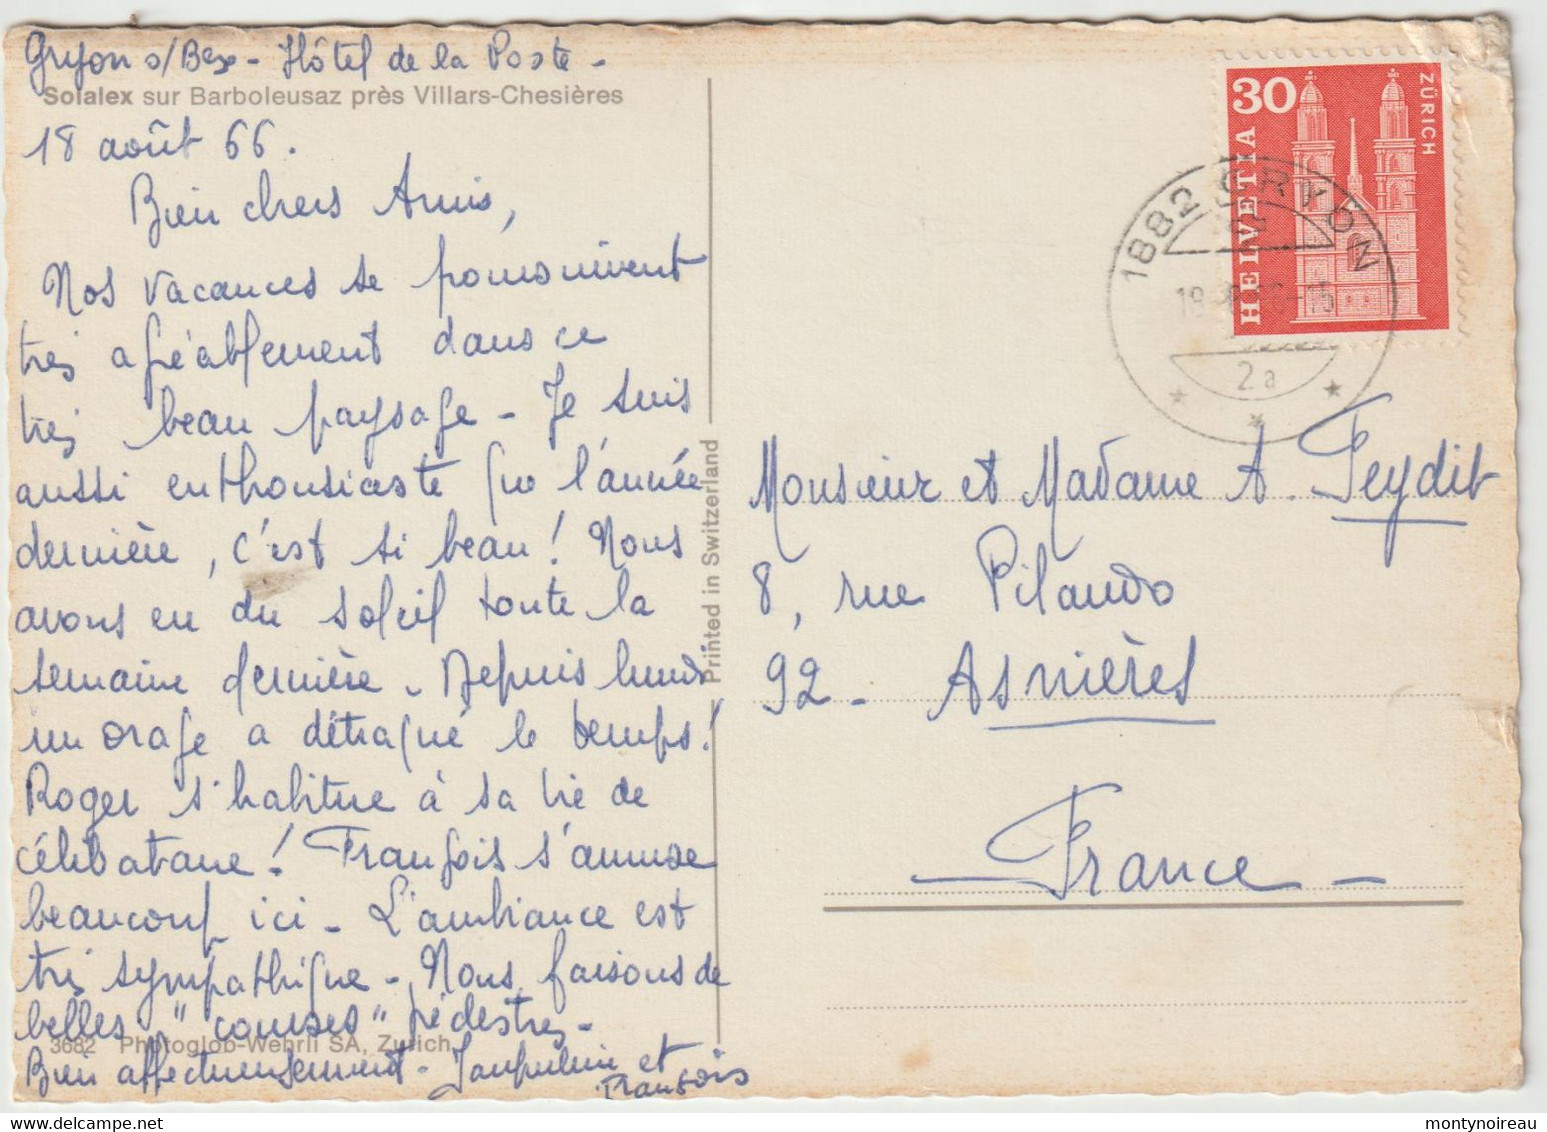 Gryon s/Bex - Hôtel de la Poste -
Solalex sur Barboleusaz près Villars-Chesières
18 août 66.
Bien chers Amis,
Nos vacances se poursuivent
très agréablement dans ce
très beau paysage - Je suis
aussi enthousiaste que l'année
dernière, c'est si beau! Nous
avons eu du soleil toute la
semaine dernière. Depuis lundi
un orage a détraqué le temps!
Roger s'habitue à sa vie de
célibataire! François s'amuse
beaucoup ici - L'ambiance est
très sympathique - Nous faisons de
belles "courses" pédestres -
3682 Photoglob-Wehrli SA, Zürich
Bien affectueusement - Jacqueline et
François
Printed in Switzerland
HELVETIA
30
ZÜRICH
1882 GRYON
2a
Monsieur et Madame A. Peydit
8, rue Pilaudo
92 - Asnières
- France -
montynoireau